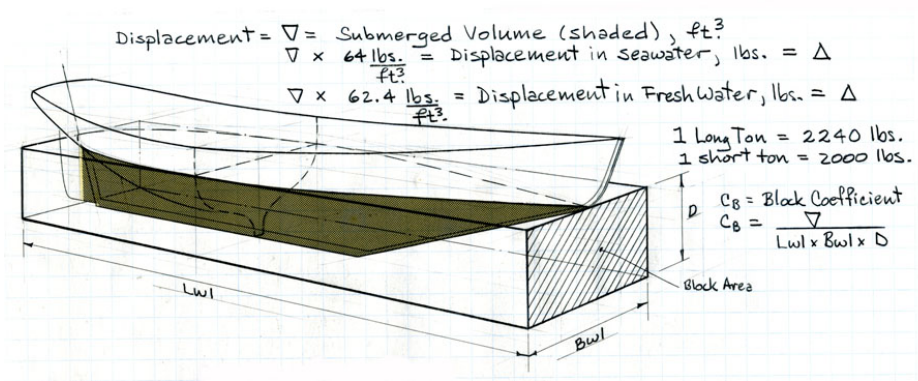 Displacement = ∇ = Submerged Volume (shaded), ft.³
∇ × 64 lbs./ft.³ = Displacement in seawater, lbs. = Δ
∇ × 62.4 lbs./ft.³ = Displacement in Fresh Water, lbs. = Δ
1 Long Ton = 2240 lbs.
1 short ton = 2000 lbs.
D
CB = Block Coefficient
CB = ∇ / Lwl x Bwl x D
Block Area
Lwl
Bwl